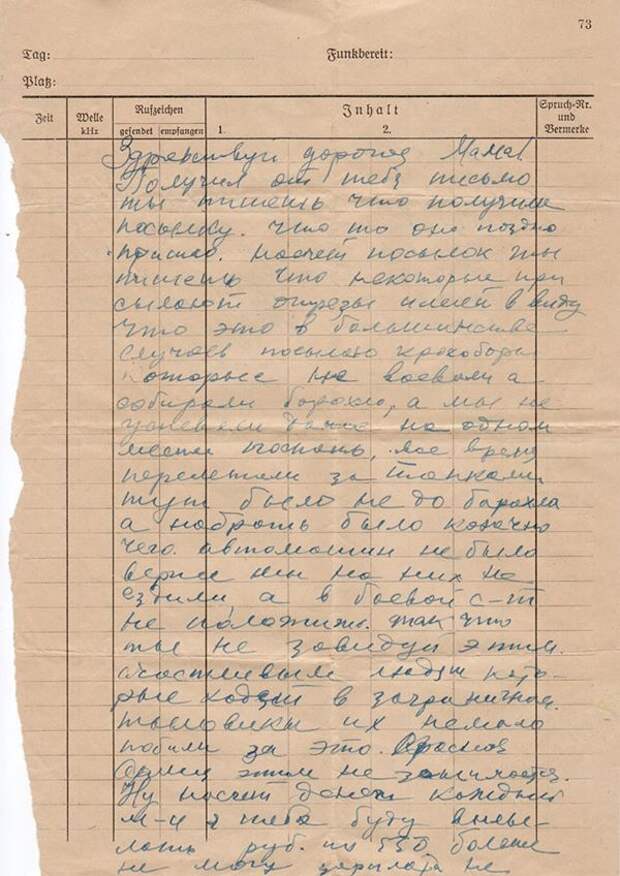 73
Tag:
Funkbereit:
Platz:
Zeit
Welle
kHz
Rufzeichen
gesendet
empfangen
Inhalt
1.
2.
Spruch-Nr.
und
Vermerke
Здравствуй дорогая Мама!
Получил от тебя письмо
ты пишешь что получили
посылку. Что то она поздно
пришла. Насчет посылок ты
пишешь что некоторые при
сылают отрезы имей в виду
что это в большинстве
случаев посылают
которые не воевали а
собирали барахло, а мы не
успевали даже на одном
месте поспать, все время
перелетали за танками
тут было не до барахла
а набрать было конечно
чего. автомашин не было
вернее мы на них не
ездили а в боевой с-т
не положишь. так что
ты не завидуй этим
счастливым людям кото-
рые ходят в заграничном
тыловики их немало
побили за это. Красная
Армия этим не занимается.
Ну насчет денег каждый
м-ц я тебе буду высы-
лать руб. по 550 более
не могу зарплата не